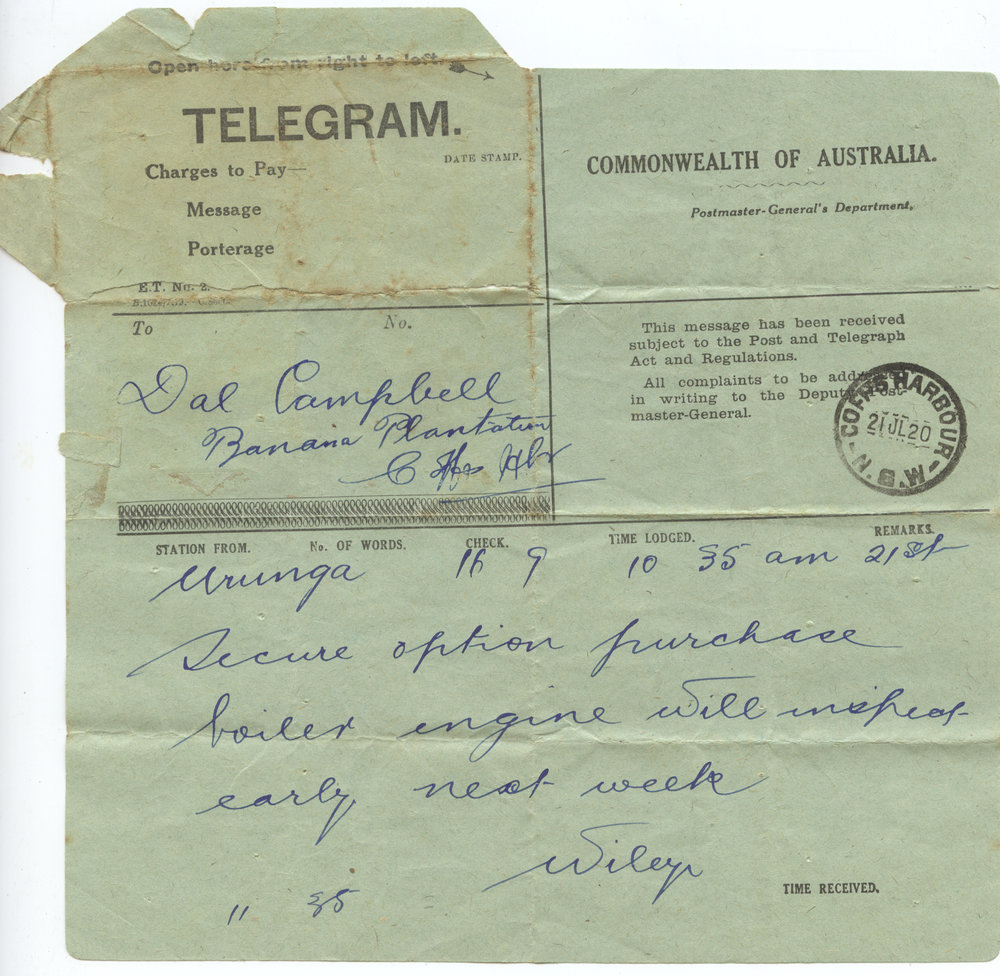 Open here from right to left.
TELEGRAM.
DATE STAMP.
Charges to Pay—
Message
Porterage
E.T. No. 2.
COMMONWEALTH OF AUSTRALIA.
Postmaster-General's Department.
To No.
Dal Campbell
Banana Plantation
C Hbr
This message has been received
subject to the Post and Telegraph
Act and Regulations.
All complaints to be addressed
in writing to the Deputy Post-
master-General.
COFFS HARBOUR
21JL20
N.S.W.
STATION FROM. No. OF WORDS. CHECK. TIME LODGED. REMARKS.
Urunga 16 9 10 35 am 21st
Secure option purchase
boiler engine will inspect
early next week
Wiley
TIME RECEIVED.
11 35